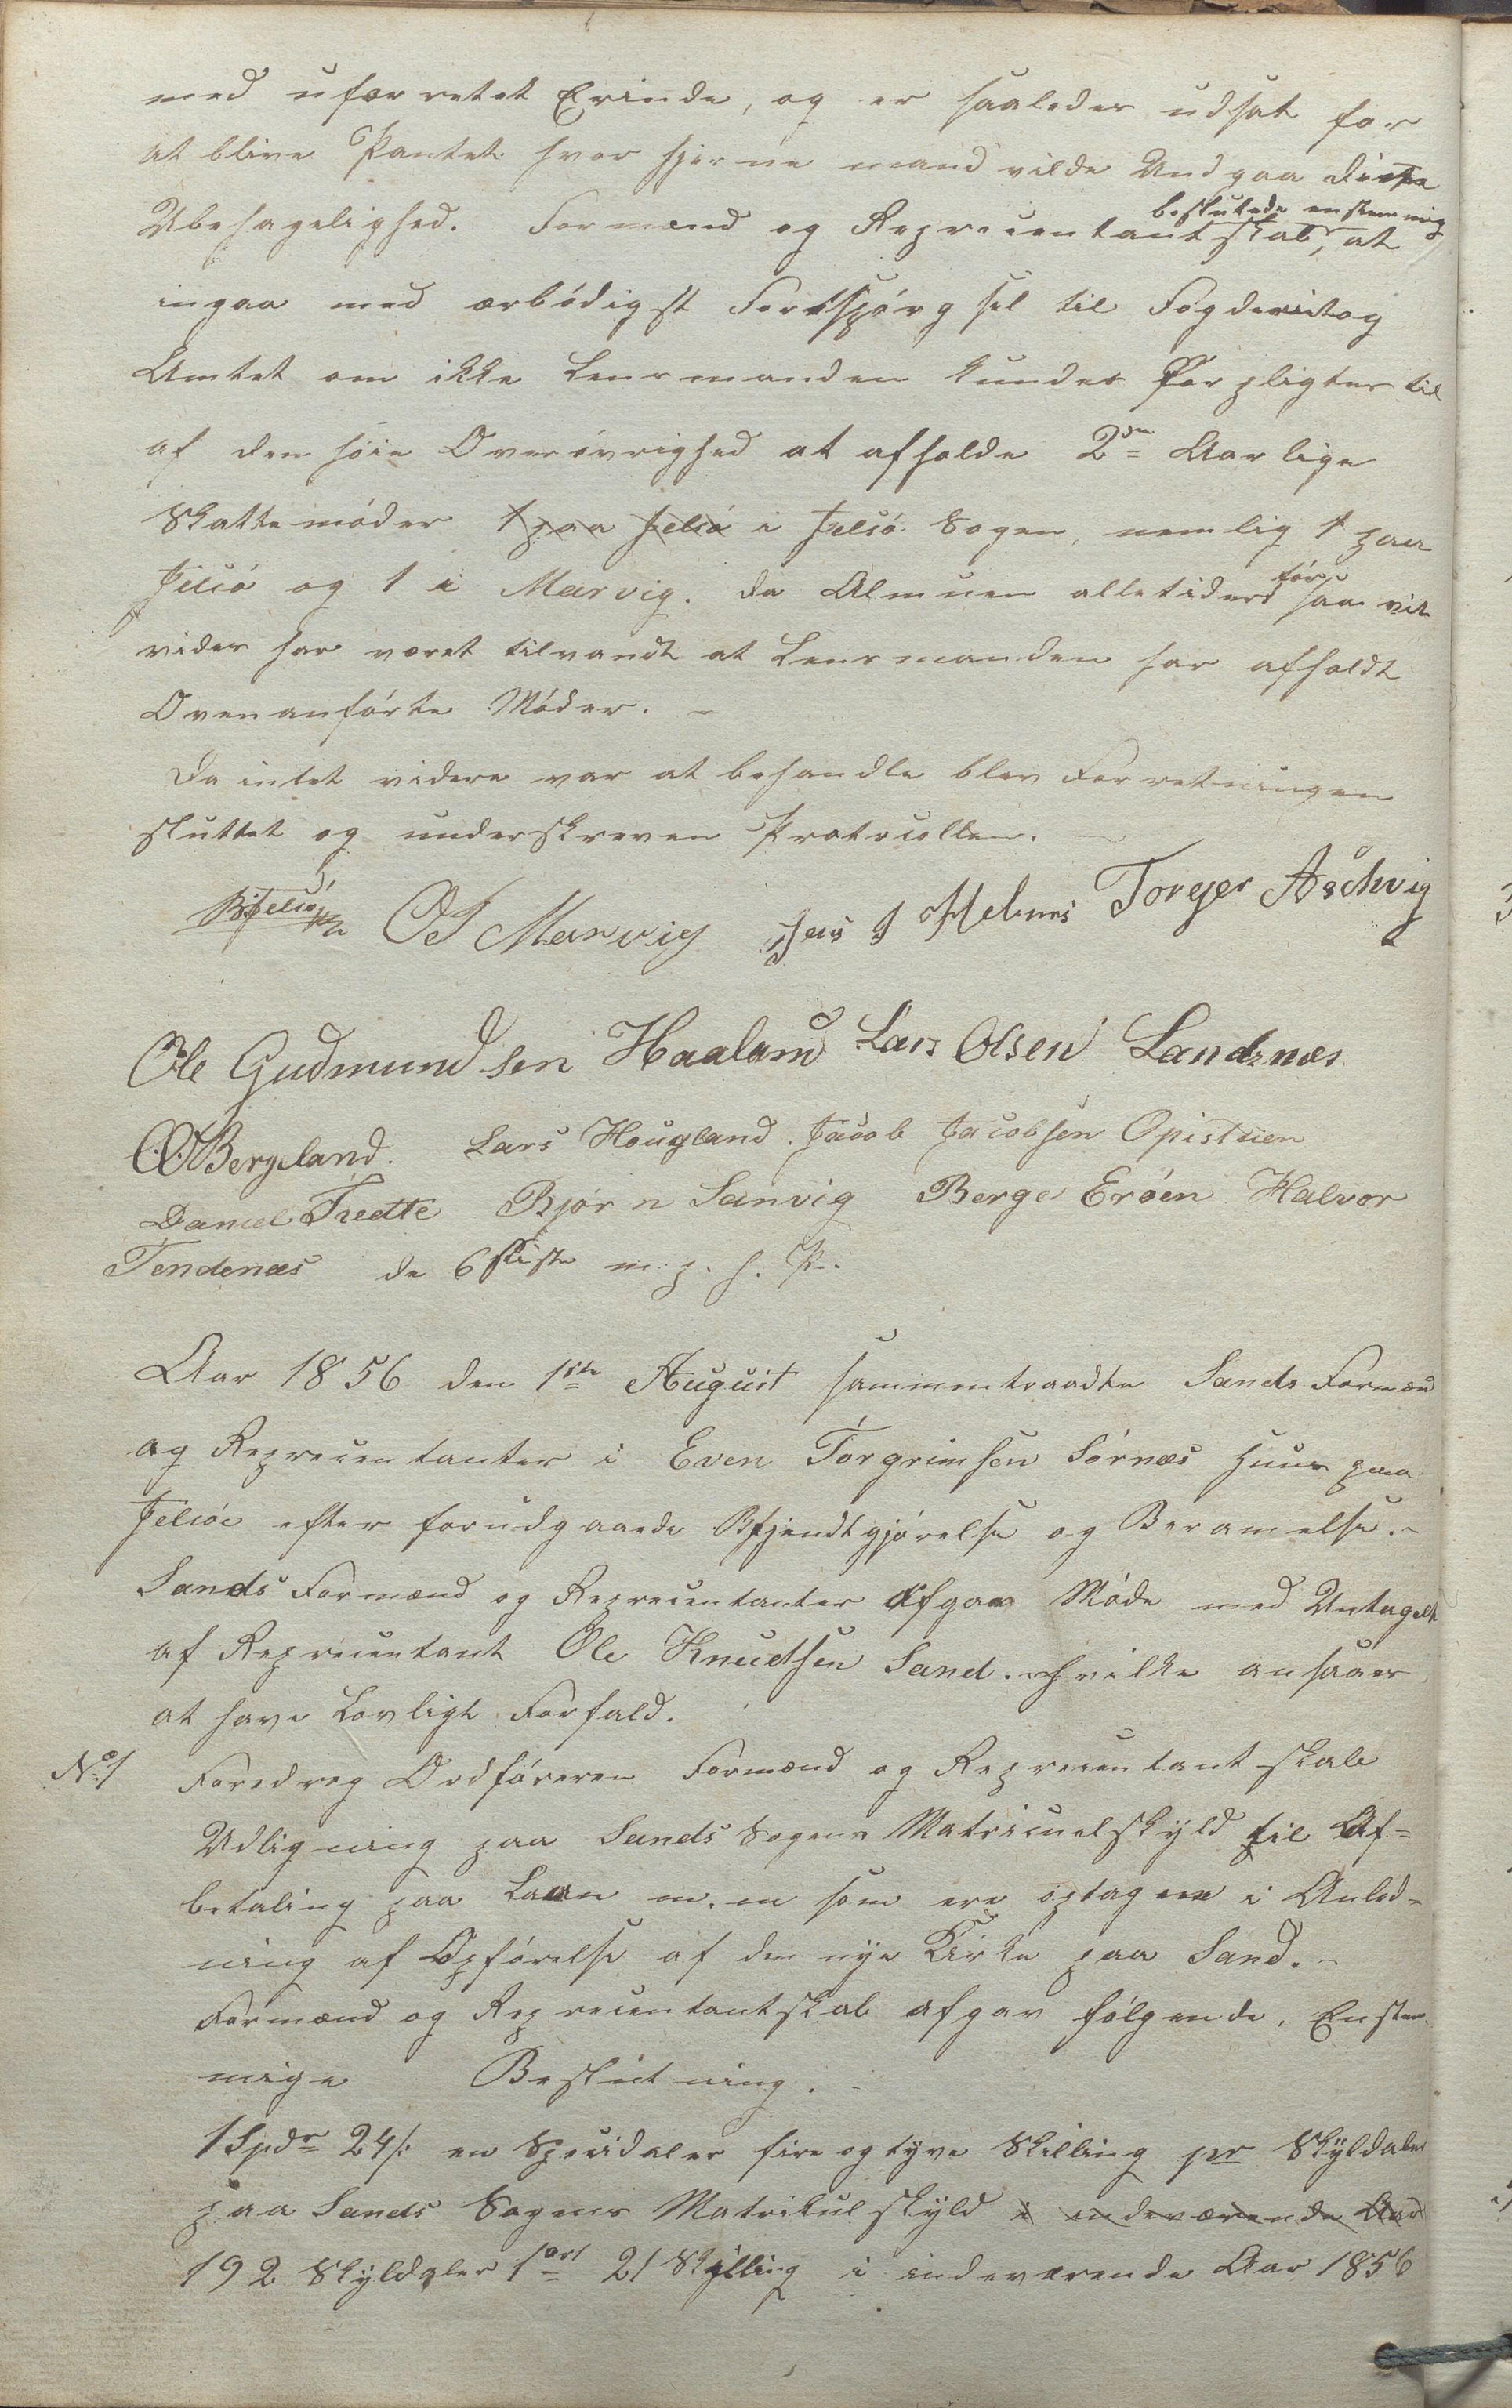 med uforrettet Erinde, og er saaledes udsat for
at blive Pantet hvor hjerne mand vilde Undgaa disse
Ubehagelighed. Formænd og Repræsentantskab, at
besluttede enstemmig
ingaa med ærbödigst Fortspörgsel til Fogderiet og
Amtet om ikke Lensmanden kundes Forpligtes til
af den höie Overövrighed at afholde 2de Aarlige
Skattemöder 1 paa Jelsö i Jelsö Sogen, nemlig 1 paa
Jelsö og 1 i Marvig. da Almuen alletider för saa vit
vides har været tilvandt at Lensmanden har afholdt
Ovenanförte Möder. –
Da intet videre var at behandle blev Forretningen
sluttet og underskreven Protocollen. –
OJ Marvig Jens J Helnes Torger Aschvig
Ole Gudmundsen Haaland Lars Olsen Landsnæs
O.O. Bergeland. Lars Hougland. Jacob Jacobsen Opistuen
Daniel Tredte Bjørn Sanvig Berge Eröen Halvor
Tendenæs de 6 sidste m. p. h. P..
Aar 1856 den 1ste August sammentraadte Sands Formænd
og Repræsentanter i Even Torgrimsen Sörnæs Huus paa
Jelsöe efter forudgaaede Bekjendtgjörelse og Beramelse. –
Sands Formænd og Repræsentanter afgav Möde med Untagelse
af Repræsentant Ole Knudtsen Sand. hvilke ansaaes
at have Lovligt Forfald.
No 1 Foredrog Ordföreren Formænd og Repræsentantskab
Udligning paa Sands Sogens Matricuelskyld til Af=
betaling paa Laan m. m som ere optagne i Anled=
ning af Opförelse af den nye Kirke paa Sand. –
Formænd og Repræsentantskab afgav fölgende, Enstem-
mige Beslutning.
1 Spdr 24 s: en Speciedaler fire og tyve Skilling pr Skyldaler
paa Sands Sogens Matrikulskyld i indeværende Aar
192 Skyldaler 1 ort 21 Skilling i indeværende Aar 1856